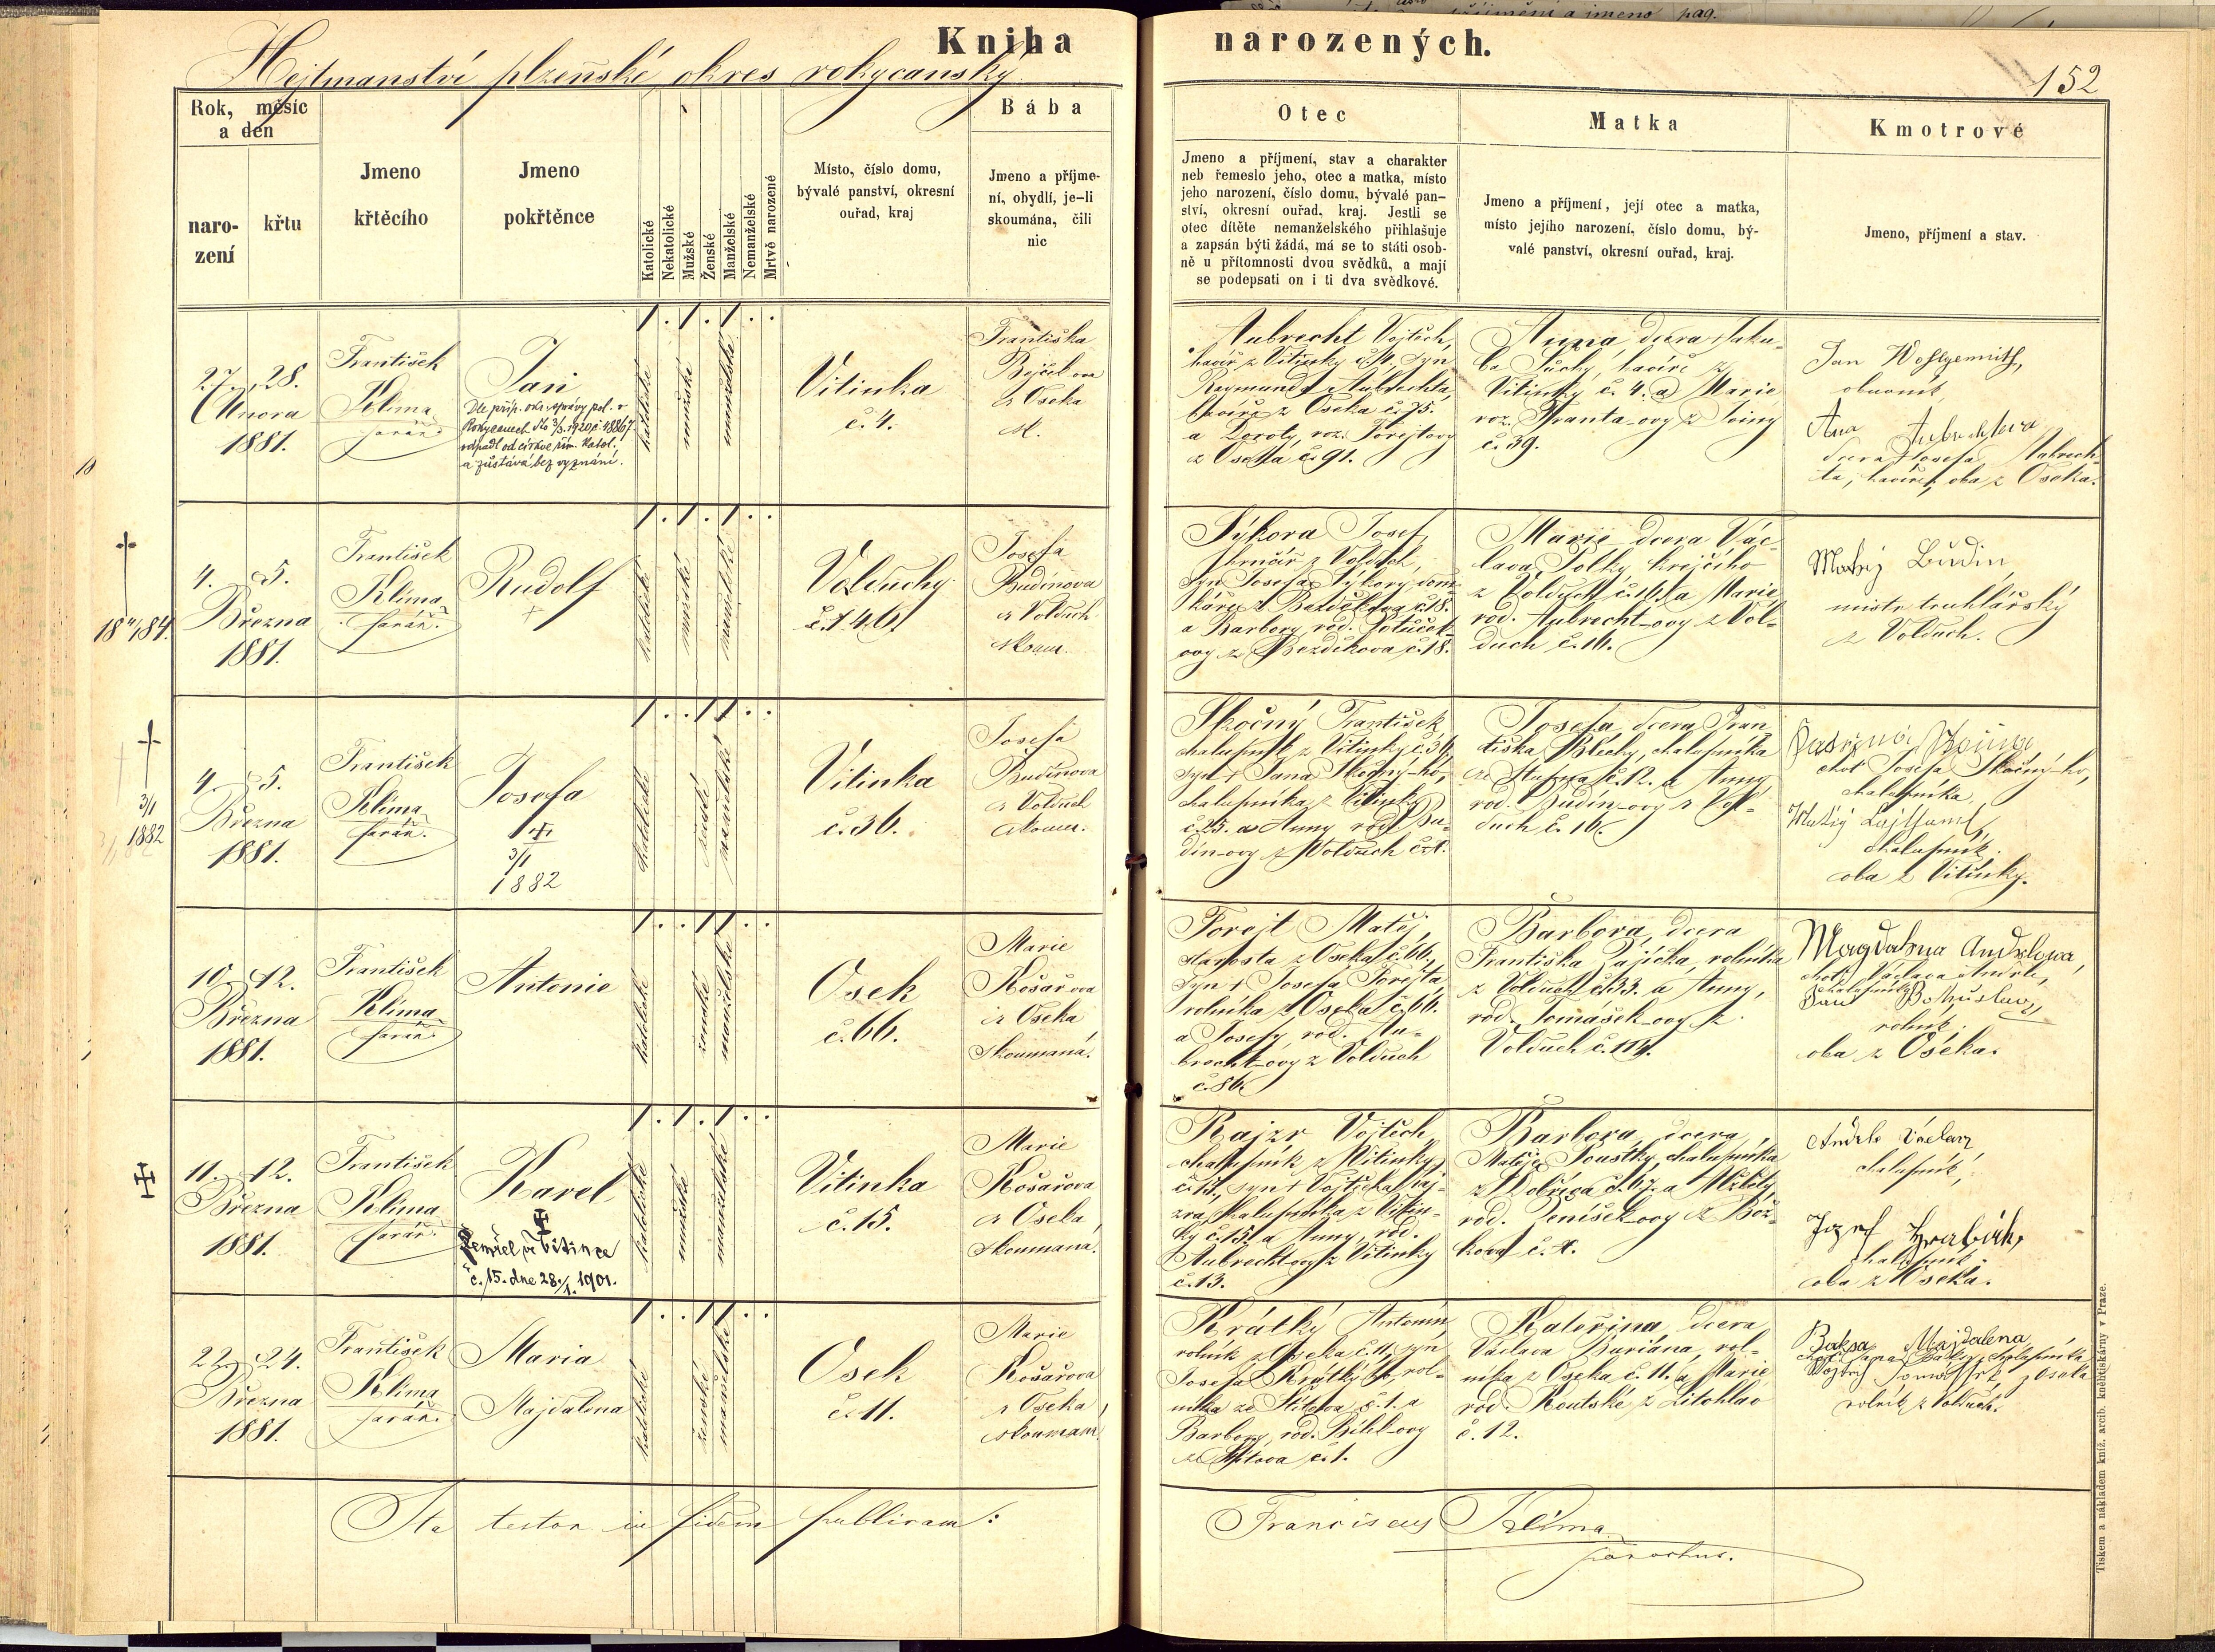 Kniha narozených.
Hejtmanství plzeňské okres rokycanský
152
Rok, měsíc
a den
naro-
zení
křtu
Jmeno
křtěcího
Jmeno
pokřtěnce
Katolické
Nekatolické
Mužské
Ženské
Manželské
Nemanželské
Mrtvě narozené
Místo, číslo domu,
bývalé panství, okresní
ouřad, kraj
Bába
Jmeno a příjme-
ní, obydlí, je-li
skoumána, čili
nic
Otec
Jmeno a příjmení, stav a charakter
neb řemeslo jeho, otec a matka, místo
jeho narození, číslo domu, bývalé pan-
ství, okresní ouřad, kraj. Jestli se
otec dítěte nemanželského přihlašuje
a zapsán býti žádá, má se to státi osob-
ně u přítomnosti dvou svědků, a mají
se podepsati on i ti dva svědkové.
Matka
Jmeno a příjmení, její otec a matka,
místo jejího narození, číslo domu, bý-
valé panství, okresní ouřad, kraj.
Kmotrové
Jmeno, příjmení a stav.
27. 28.
Února
1881.
František
Klima
farář.
Jan
Dle příp. okr. správy pol. v
Rokycanech dto 3/3. 1920 č. 48867
odpadl od církve řím. katol.
a zůstává bez vyznání.
1 . 1 . 1 . .
katolické
mužské
manželské
Vitinka
č. 4.
Františka
z Oseka
Aubrecht Vojtěch,
havíř z Vitinky č. 4, syn
Raymunda Aubrechta,
havíře z Oseka č. 75.
a Doroty, roz. Forejtovy
z Oseka č. 91.
Anna dcera Jaku-
ba Suchý, havíře z
Vitinky č. 4. a Marie
roz. Franta-ovy z
č. 39.
Jan
obuvník,
Ana Aubrechtova
dcera Josefa Aubrech-
ta, havíře, oba z Oseka.
18 84.
4. 5.
Března
1881.
František
Klíma
farář.
Rudolf
1 . 1 . 1 . .
katolické
mužské
manželské
Volduchy
č. 146.
Josefa
Budínova
z Volduch
skoum.
Sýkora Josef,
z Volduch,
syn Josefa Sýkory, dom-
káře z Bezděkova č. 18.
a Barbory rod. Potůček-
ovy z Bezděkova č. 18.
Marie dcera Vác-
lava Polky krejčího
z Volduch č. 16. a Marie,
rod. Aubrecht-ovy z Vol-
duch č. 16.
Matěj Budin,
mistr truhlářský
z Volduch.
3/1
1882
4. 5.
Března
1881.
František
Klíma
farář.
Josefa
3/1
1882
1 . . 1 1 . .
katolické
ženské
manželské
Vitinka
č. 36.
Josefa
Budínova
z Volduch
skoum.
Skočný František
chalupník z Vitinky č. 36,
syn Jana Skočný-ho,
chalupníka z Vitinky
č. 25. a Anny rod. Bu-
dín-ovy z Volduch č. 1.
Josefa, dcera Fran-
tiška Blechy, chalupníka
č. 12. a Anny
rod. Budín-ovy z Vol-
duch č. 16.
choť Josefa Skočný-ho,
chalupníka.
Matěj
chalupník.
oba z Vitinky.
10. 12.
Března
1881.
František
Klíma
farář
Antonie
1 . . 1 1 . .
katolické
ženské
manželské
Osek
č. 66.
Marie
Košařova
z Oseka
skoumaná.
Forejt Matěj,
starosta z Oseka č. 66.,
syn Josefa Forejta,
rolníka z Oseka č. 66.
a Josefy rod. Au-
brecht-ovy z Volduch
č. 86
Barbora, dcera
Františka Pajíčka, rolníka
z Volduch č. 33. a Anny,
rod. Tomášek-ovy z
Volduch č. 114.
Magdalena Andrlowa,
choť Václava Andrle,
chalupníka
Bohuslav,
rolník.
oba z Oseka.
11. 12.
Března
1881.
František
Klíma
farář.
Karel
Zemřel ve Vitince
č. 15. dne 28./1. 1901.
1 . 1 . 1 . .
katolické
mužské
manželské
Vitinka
č. 15.
Marie
Košařova
z Oseka,
skoumaná.
Kajzr Vojtěch,
chalupník z Vitinky
č. 15, syn Vojtěcha Kaj-
zra, chalupníka z Vitin-
ky č. 15. a Anny, rod.
Aubrecht-ovy z Vitinky
č. 13.
Barbora, dcera
Matěje Soustky, chalupníka
z Dobříva č. 67. a Alžběty
rod. Denišek-ovy z
č. 4.
Andrle Václav
chalupník,
Jozef Hrabák,
chalupník.
oba z Oseka.
22. 24.
Března
1881.
František
Klíma
farář.
Maria
Majdalena
1 . . 1 1 . .
katolické
ženské
manželské
Osek
č. 11.
Marie
Košařova
z Oseka,
skoumaná.
Krátký Antonín,
rolník z Oseka č. 11, syn
Josefa Krátký-ho, rol-
níka ze Štítova č. 1. a
Barbory, rod. Bihl-ovy
ze Štítova č. 1.
Kateřina dcera
Václava Buriána, rol-
níka z Oseka č. 11. a Marie
rod. Koutské z Litohlav
č. 12.
Baksa Majdalena
choť Jana Baksy, chalupníka
z Oseka
rolník z Volduch.
Ita testor in fidem publicam:
Franciscus Klíma
parochus.
Tiskem a nákladem kníž. arcib. knihtiskárny v Praze.